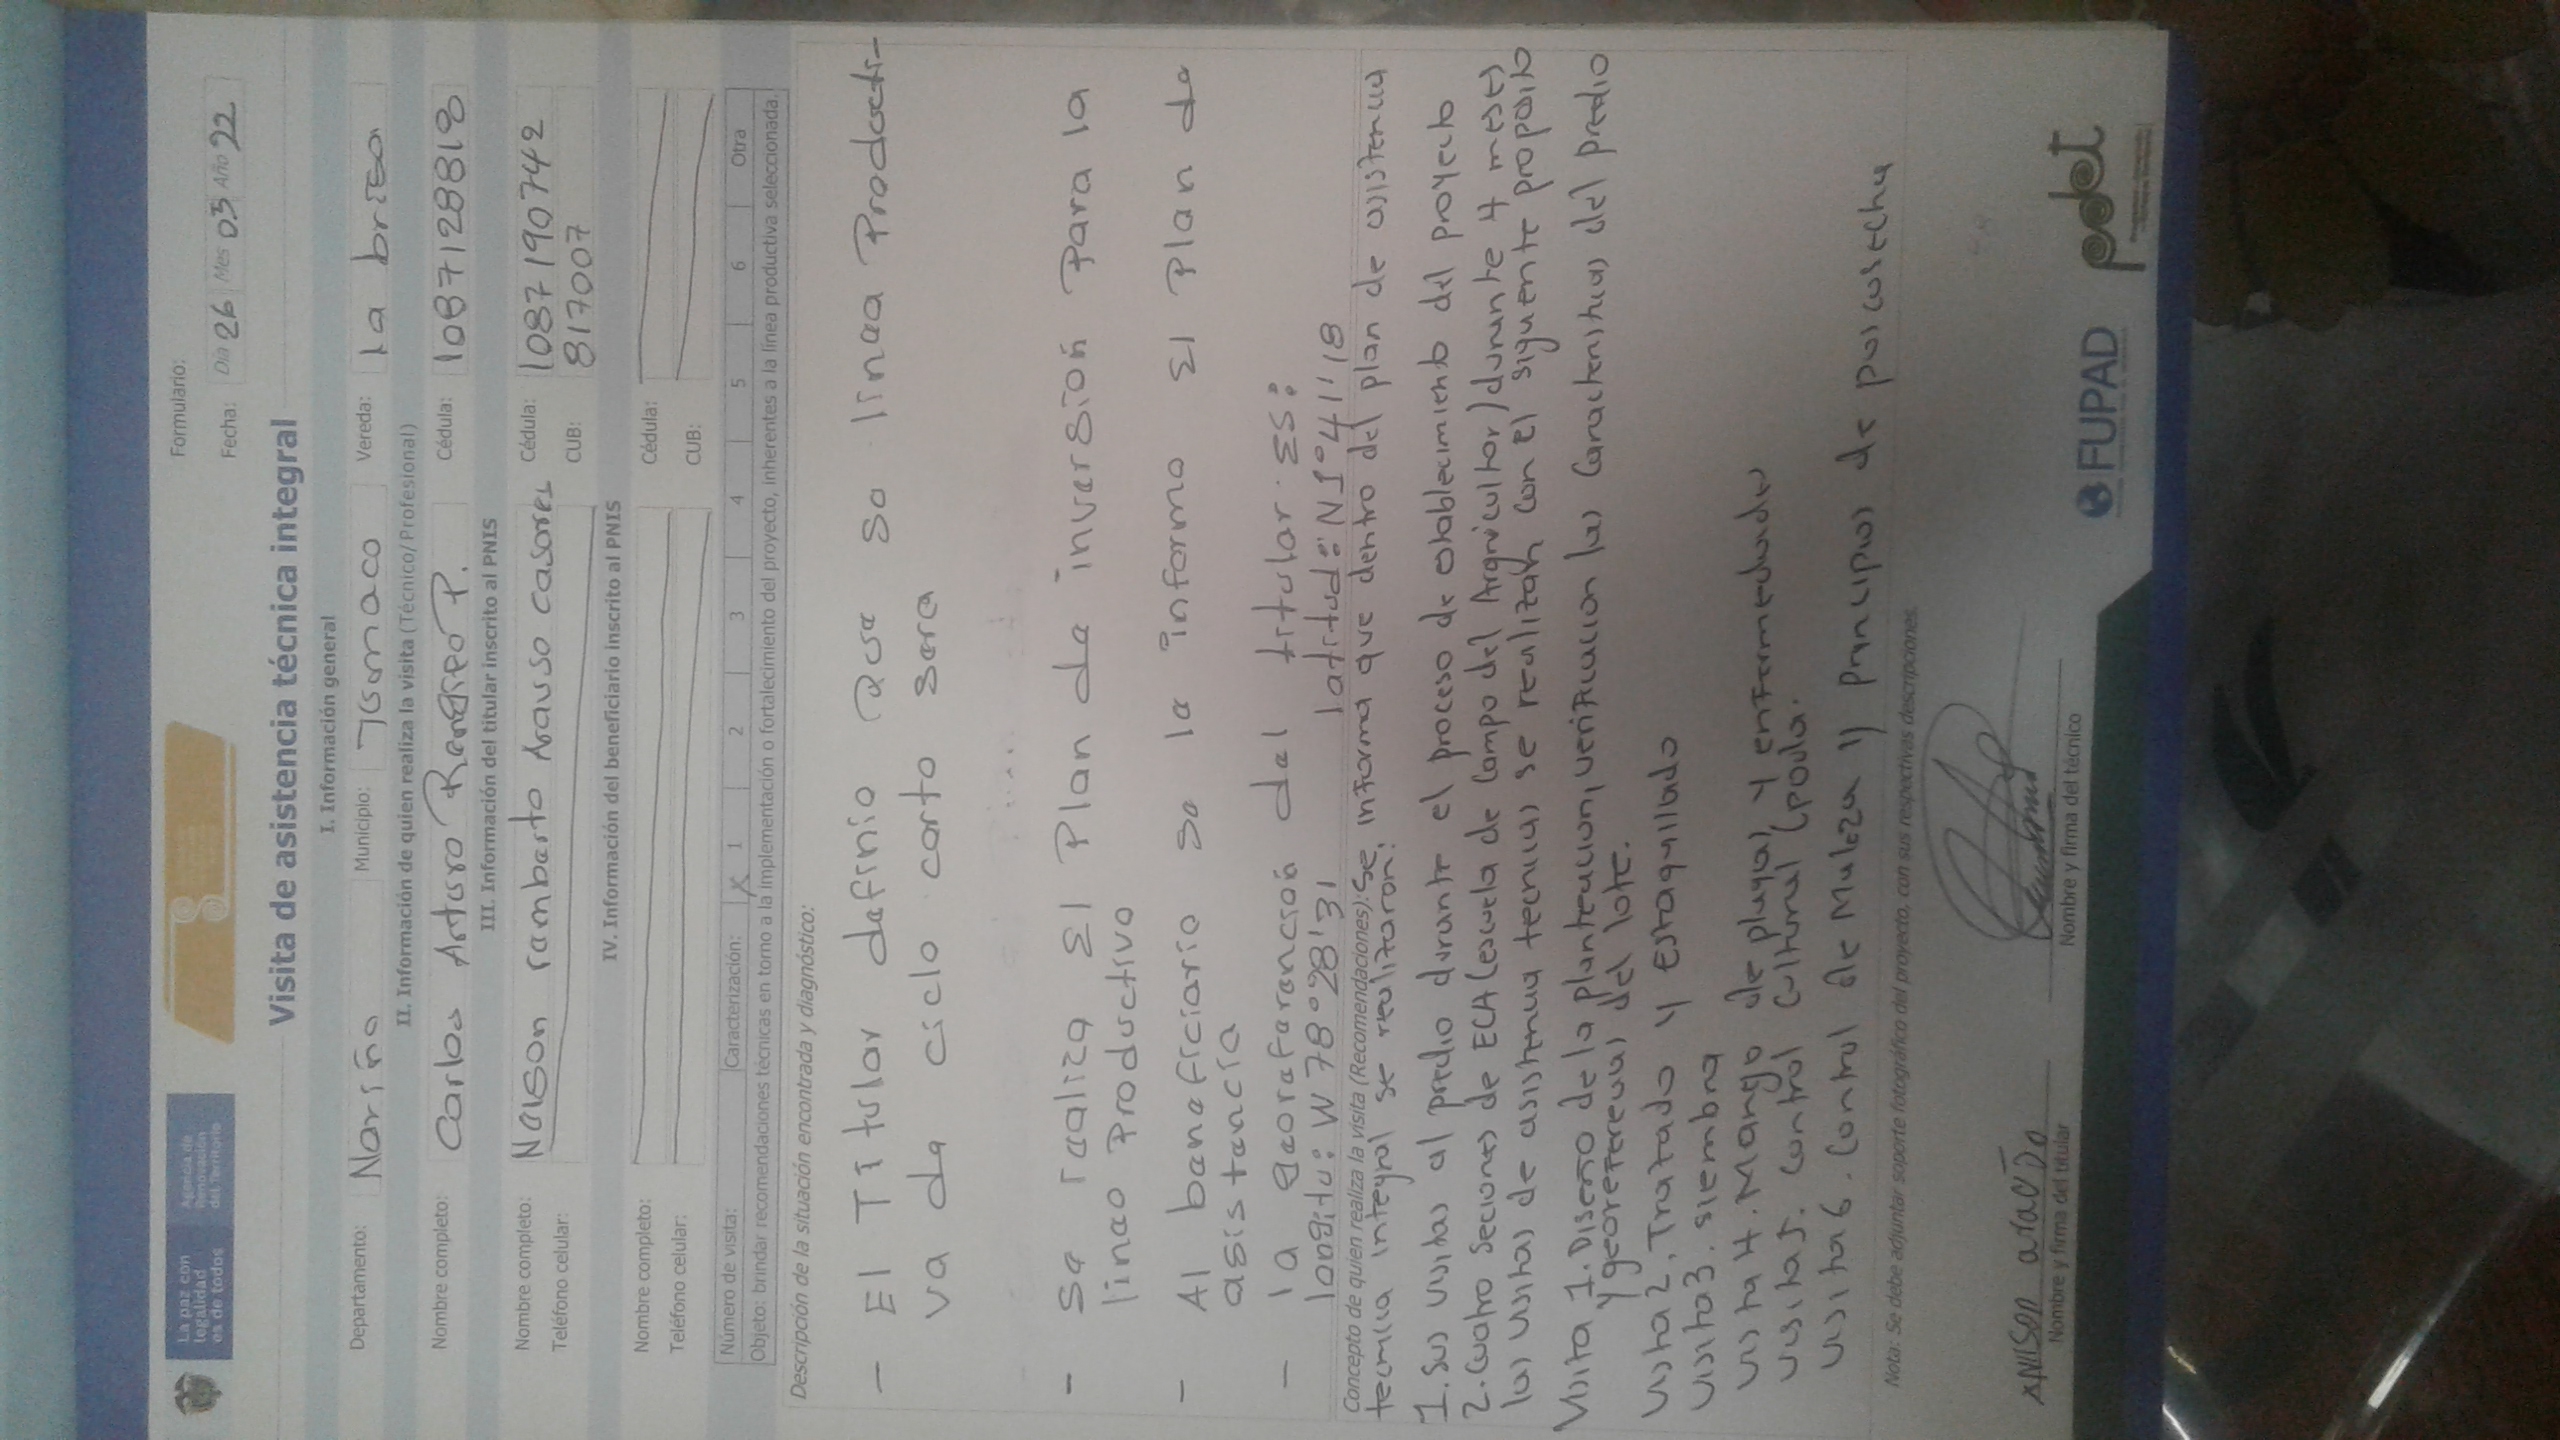 La paz con
legalidad
es de todos
Agencia de
Renovación
del Territorio
Formulario:
Fecha: Día 26 Mes 03 Año 22
Visita de asistencia técnica integral
I. Información general
Departamento: Nariño Municipio: Tumaco Vereda: la brisa
II. Información de quien realiza la visita (Técnico/Profesional)
Nombre completo: Carlos Arturo Restrepo P. Cédula: 1087128818
III. Información del titular inscrito al PNIS
Nombre completo: Nelson ramberto Arauso casares Cédula: 1087190742
Teléfono celular: CUB: 817007
IV. Información del beneficiario inscrito al PNIS
Nombre completo: Cédula:
Teléfono celular: CUB:
Número de visita: Caracterización: X 1 2 3 4 5 6 Otra
Objeto: brindar recomendaciones técnicas en torno a la implementación o fortalecimiento del proyecto, inherentes a la línea productiva seleccionada.
Descripción de la situación encontrada y diagnóstico:
- El Titular definio que su linea Producti-
va de ciclo corto sera
- Se realiza El Plan de inversión Para la
linea Productivo
- Al beneficiario se le informo El Plan de
asistencia
- la georeferención del titular ES:
longitu: W 78°28'31 latitud: N1°41'18
Concepto de quien realiza la visita (Recomendaciones): Se informa que dentro del plan de asistencia
tecnica integral se realizaron:
1. Sus visitas al predio durante el proceso de establecimiento del proyecto
2. Cuatro Secciones de ECA (escuela de Campo del Agricultor) durante 4 meses
las visitas de asistencia tecnicas se realizan con el siguiente proposito
Visita 1. Diseño de la planteacion, verificacion las Caracteristicas del predio
y georeferencias del lote.
Visita 2, Trazado y Estaquillado
Visita 3. siembra
Visita 4. Manejo de plagas y enfermedades
Visita 5. Control Cultural (poda.
Visita 6. Control de Maleza y principios de poscosecha
Nota: Se debe adjuntar soporte fotográfico del proyecto, con sus respectivas descripciones.
Nombre y firma del titular
Nombre y firma del técnico
FUPAD
pdet